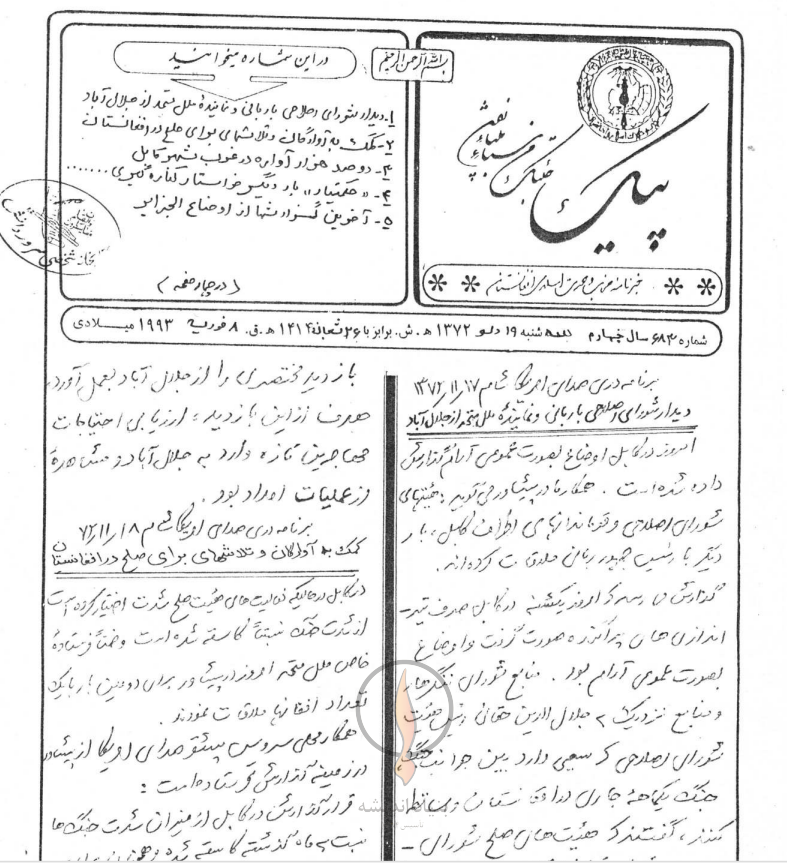 بسم الله الرحمن الرحیم
پیک
خبرنامه حزب وحدت اسلامی افغانستان
در این شماره میخوانید
۱- دیدار شورای اصلاحی با ربانی و نماینده ملل متحد از جلال آباد
۲- کمک به آوارگان و تلاشهای برای صلح در افغانستان
۳- دوصد هزار آواره در غرب شهر کابل
۴- «حکمتیار» بار دیگر خواستار کناره گیری .......
۵- آخرین گزارشها از اوضاع الجزایر
(در چهار صفحه)
شماره ۶۸۳ سال چهارم سه شنبه ۱۹ دلو ۱۳۷۲ ه.ش. برابر با ۲۶ شعبان ۱۴۱۴ ه.ق. ۸ فوریه ۱۹۹۳ میلادی
برنامه دری صدای امریکا شام ۱۷/۱۱/۱۳۷۲
دیدار شورای اصلاحی با ربانی و نماینده ملل متحد از جلال آباد
امروز در کابل اوضاع بصورت عمومی آرام گزارش
داده شده است. همکار ما در پشاور می گوید: هیئتهای
شورای اصلاحی و قوماندانهای اطراف کابل، بار
دیگر با رئیس جمهور ربانی ملاقات کرده اند.
گزارش می رسد که امروز یکشنبه در کابل صرف تیر-
اندازی های پراگنده صورت گرفت و اوضاع
بصورت عمومی آرام بود. منابع شورای ننگرهار
و منابع نزدیک به جلال الدین حقانی رئیس هیئت
شورای اصلاحی که سعی دارد بین جوانب جنگ،
جنگ یکماهه جاری در افغانستان وساطت
کنند، گفتند که هیئت های صلح شورای -
بازدید مختصری را از جلال آباد بعمل آورد.
هدف از این بازدید، ارزیابی احتیاجات
مهاجرین تازه وارد به جلال آباد و مشاهدهٔ
از عملیات امداد بود.
برنامه دری صدای امریکا شام ۱۸/۱۱/۷۲
کمک به آوارگان و تلاشهای برای صلح در افغانستان
در کابل در حالیکه فعالیت های هیئت صلح شدت اختیار کرده است
از شدت جنگ نسبتاً کاسته شده است و ضمناً فرستادهٔ
خاص ملل متحد امروز در پشاور برای دومین بار با یک
تعداد افغانها ملاقات نمودند.
همکار محلی سرویس پشتو صدای امریکا از پشاور
در زمینه گزارش فرستاده است:
قرار گزارش در کابل از میزان شدت جنگ ها
نسبت به ماه گذشته کاسته شده و